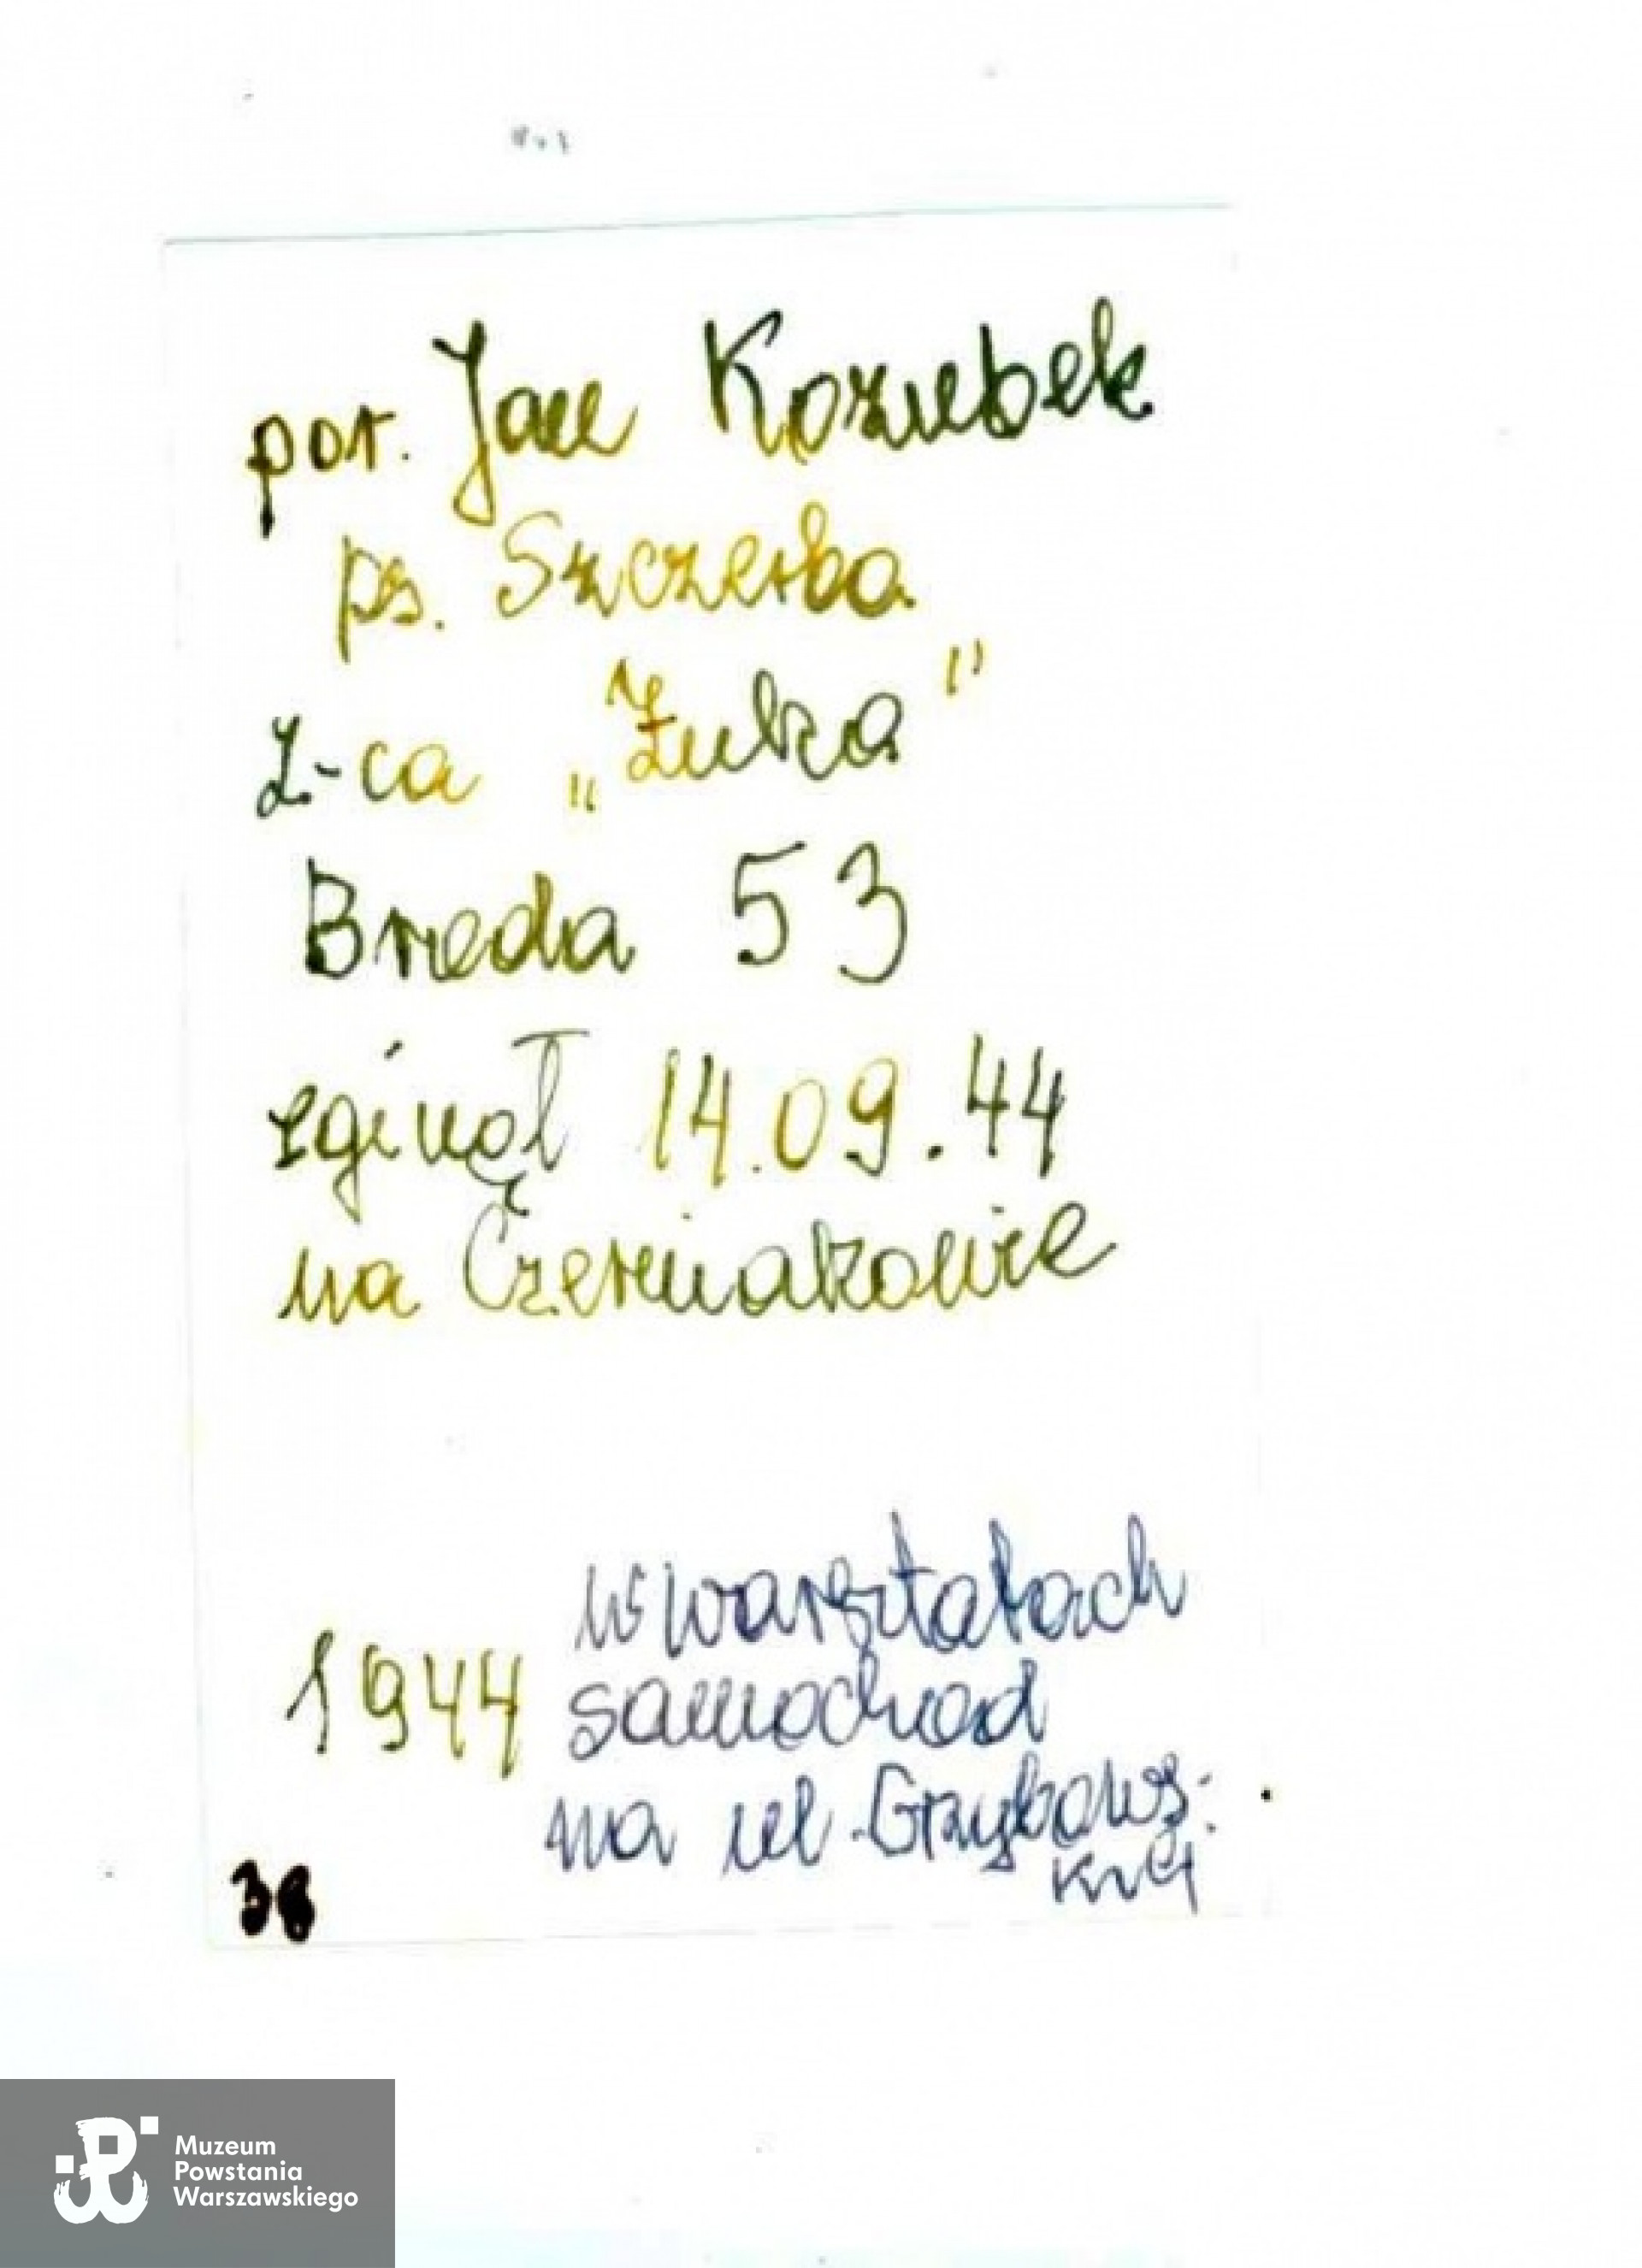 por. Jan Kozubek
ps. Szczerba
Z-ca „Żuka"
Breda 53
zginął 14.09.44
na Czerniakowie
1944
w warsztatach
samochod
na ul. Grzybows:
kiej
38
Muzeum
Powstania
Warszawskiego